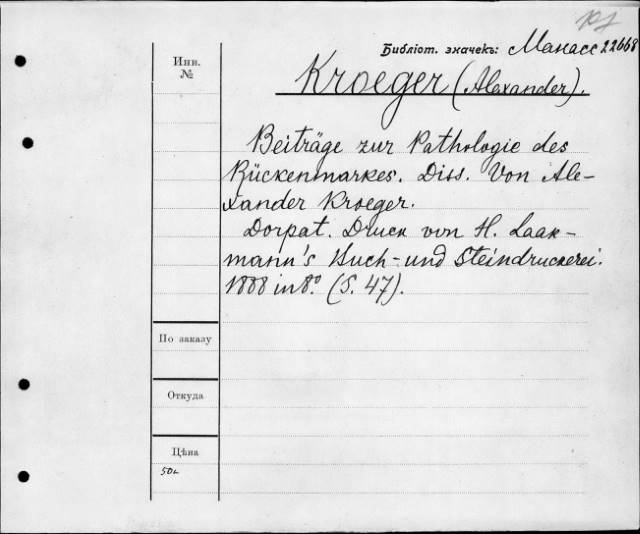 Библіот. значекъ: Манасс 22668
Инв. №
Kroeger (Alexander).
Beiträge zur Pathologie des
Rückenmarkes. Diss. Von Ale-
xander Kroeger.
Dorpat. Druck von H. Laak-
mann's Buch- und Steindruckerei.
1888 in 8° (S. 47).
По заказу
Откуда
Цѣна